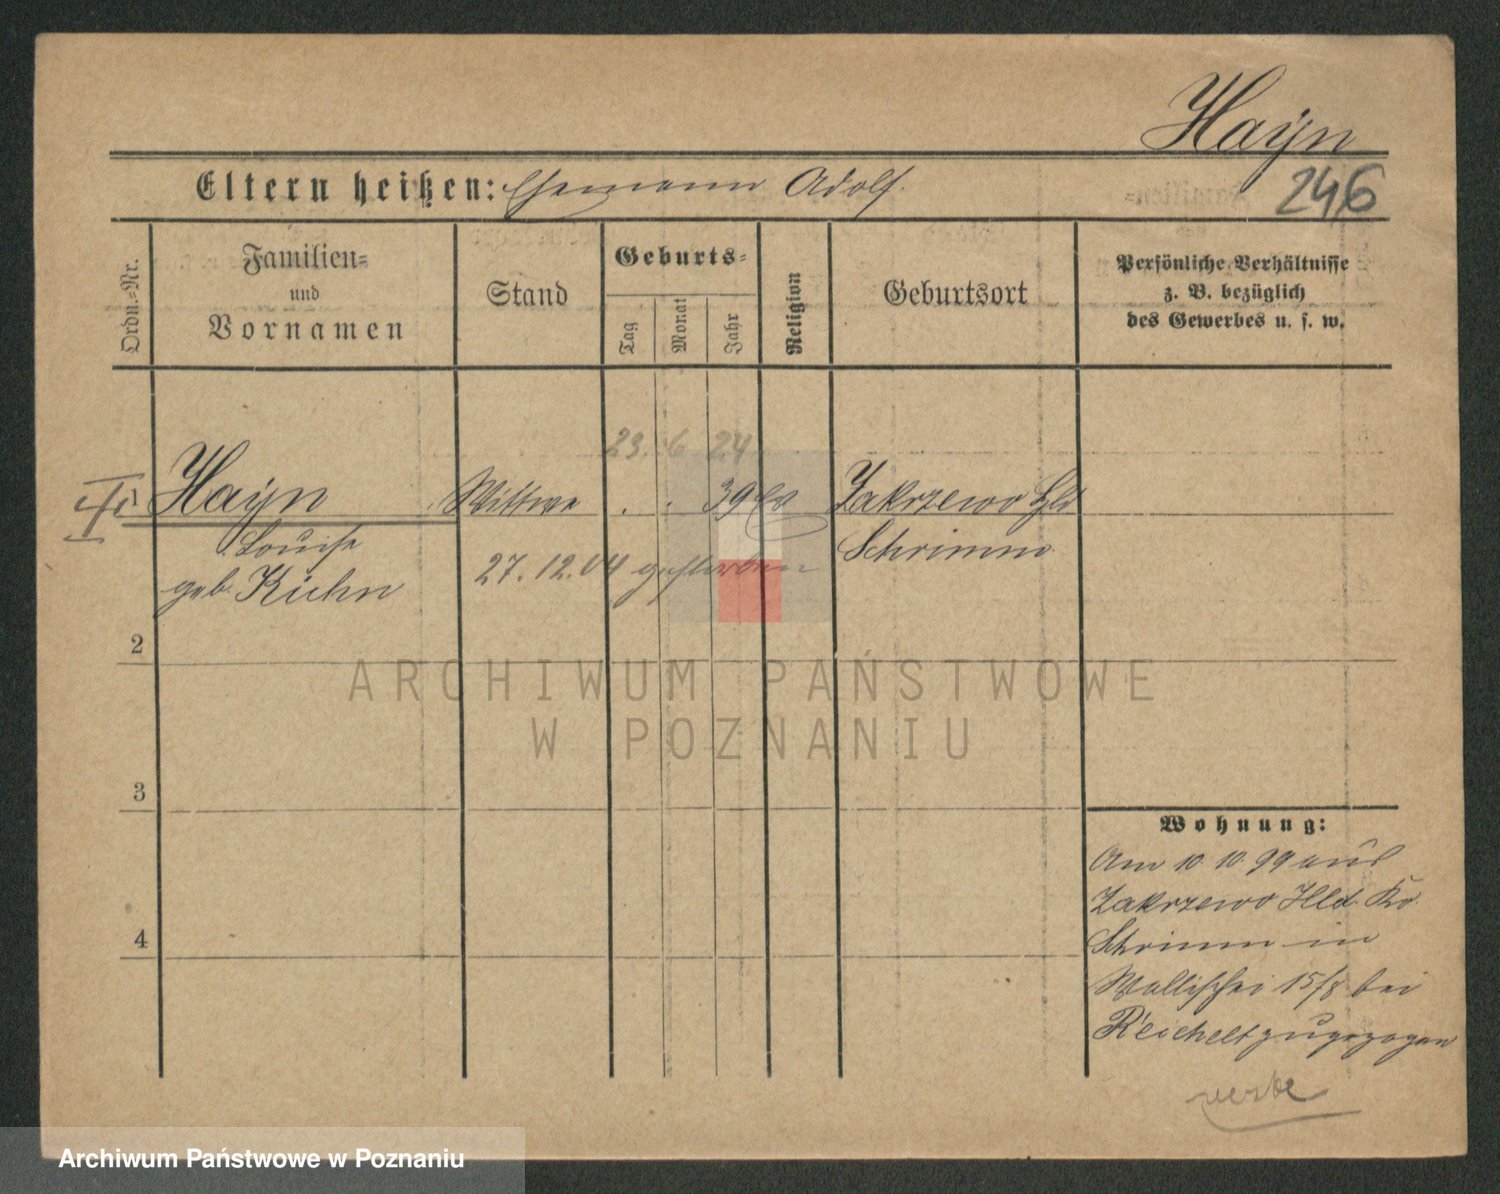 Hayn
Eltern heißen: Ehemann Adolf.
246
Ordn.-Nr.
Familien-
und
Vornamen
Stand
Geburts-
Tag
Monat
Jahr
Religion
Geburtsort
Persönliche Verhältnisse
z. B. bezüglich
des Gewerbes u. s. w.
23. 6 24
Hayn Wittwe . . 39 ev Zakrzewo Hld
Louise Schrimm
geb. Kühn 27.12.04 gestorben
2
ARCHIWUM PAŃSTWOWE
W POZNANIU
3
Wohnung:
Am 10 10 99 aus
Zakrzewo Hld. Kr.
4
Schrimm in
Wallischei 15/8 bei
Reichelt zugezogen
Archiwum Państwowe w Poznaniu